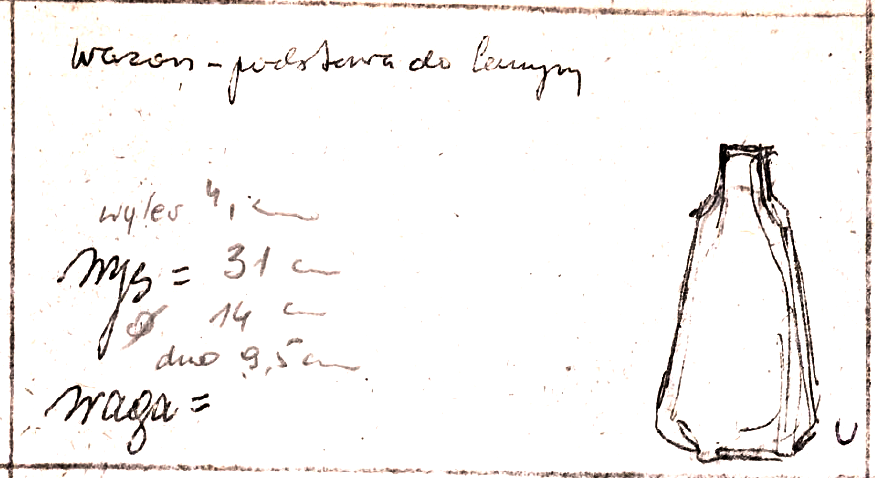 Wazon - podstawa do lampy
wylew 4, cm
wys = 31 cm
ø 14 cm
dno 9,5 cm
waga =
U